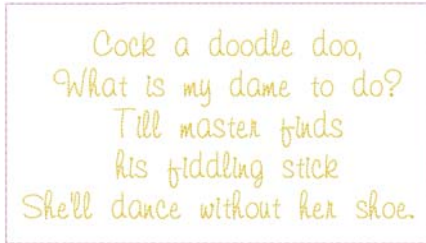 Cock a doodle doo,
What is my dame to do?
Till master finds
his fiddling stick
She'll dance without her shoe.